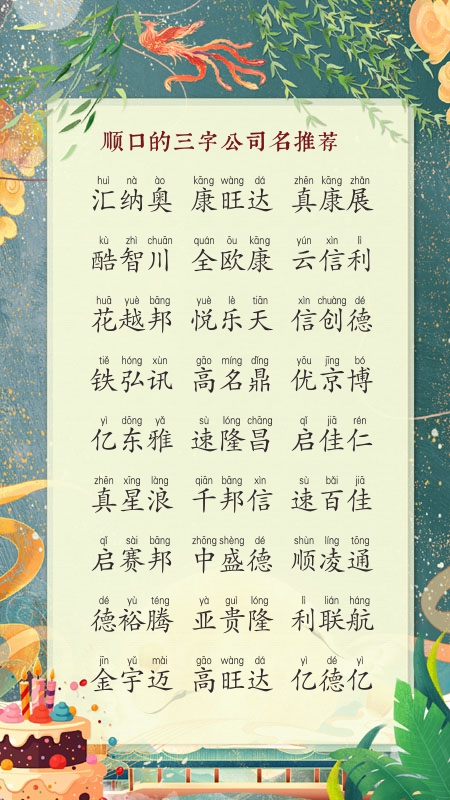 顺口的三字公司名推荐
huì nà ào kāng wàng dá zhēn kāng zhǎn
汇纳奥 康旺达 真康展
kù zhì chuān quán ōu kāng yún xìn lì
酷智川 全欧康 云信利
huā yuè bāng yuè lè tiān xìn chuàng dé
花越邦 悦乐天 信创德
tiě hóng xùn gāo míng dǐng yōu jīng bó
铁弘讯 高名鼎 优京博
yì dōng yǎ sù lóng chāng qǐ jiā rén
亿东雅 速隆昌 启佳仁
zhēn xīng làng qiān bāng xìn sù bǎi jiā
真星浪 千邦信 速百佳
qǐ sài bāng zhōng shèng dé shùn líng tōng
启赛邦 中盛德 顺凌通
dé yù téng yà guì lóng lì lián háng
德裕腾 亚贵隆 利联航
jīn yǔ mài gāo wàng dá yì dé yì
金宇迈 高旺达 亿德亿